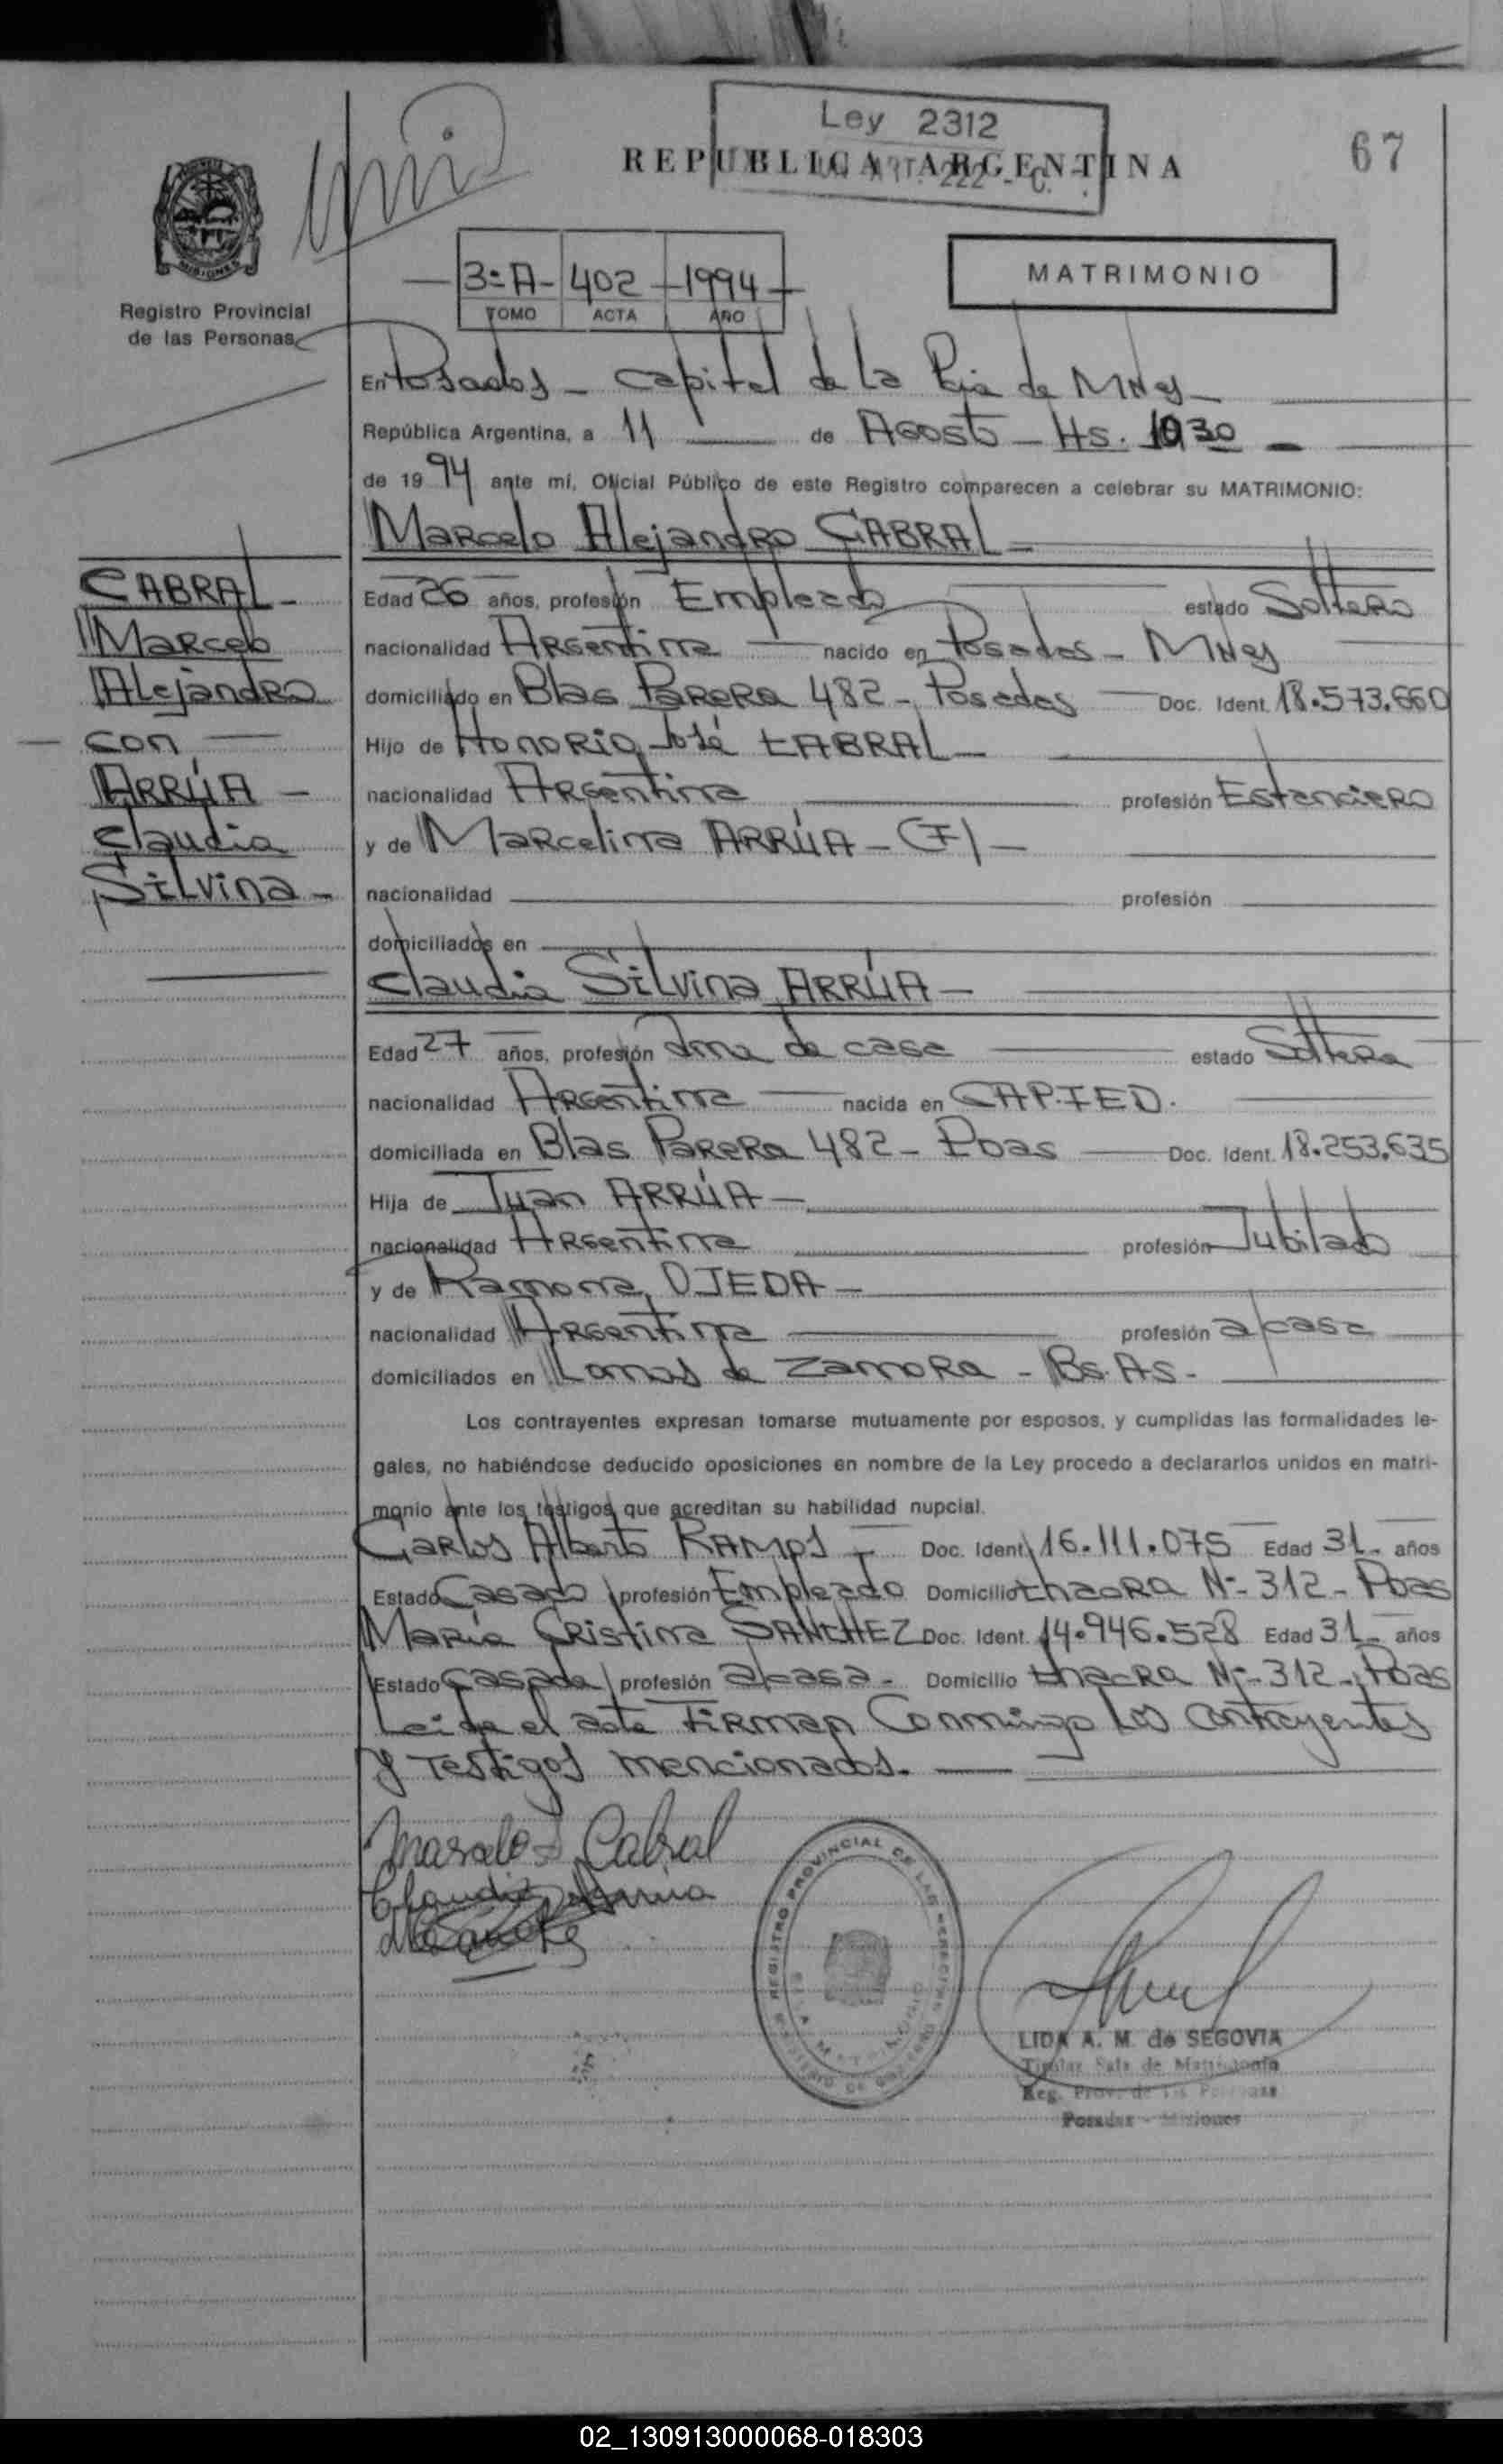 Ley 2312
REPUBLICA ARGENTINA
ART. 222 - C.
67
MISIONES
Registro Provincial
de las Personas
3º A - 402 - 1994
TOMO ACTA AÑO
MATRIMONIO
En Posadas - Capital de la Pcia de MNes -
República Argentina, a 11 de Agosto - Hs. 1030 -
de 1994 ante mí, Oficial Público de este Registro comparecen a celebrar su MATRIMONIO:
Marcelo Alejandro CABRAL -
CABRAL -
Marcelo
Alejandro
- con -
ARRÚA -
Claudia
Silvina -
Edad 26 años, profesión Empleado estado Soltero
nacionalidad Argentina nacido en Posadas - MNes
domiciliado en Blas Parera 482 - Posadas Doc. Ident. 18.573.660
Hijo de Honorio José CABRAL -
nacionalidad Argentina profesión Estanciero
y de Marcelina ARRÚA - (F) -
nacionalidad profesión
domiciliados en
Claudia Silvina ARRÚA -
Edad 27 años, profesión Ama de casa estado Soltera
nacionalidad Argentina nacida en CAP. FED.
domiciliada en Blas Parera 482 - Pdas Doc. Ident. 18.253.635
Hija de Juan ARRÚA -
nacionalidad Argentina profesión Jubilado
y de Ramona OJEDA -
nacionalidad Argentina profesión a/casa
domiciliados en Lomas de Zamora - Bs. As. -
Los contrayentes expresan tomarse mutuamente por esposos, y cumplidas las formalidades le-
gales, no habiéndose deducido oposiciones en nombre de la Ley procedo a declararlos unidos en matri-
monio ante los testigos que acreditan su habilidad nupcial.
Carlos Alberto RAMOS - Doc. Ident. 16.111.075 Edad 31 - años
Estado Casado profesión Empleado Domicilio Chacra Nº 312 - Pdas
María Cristina SANCHEZ Doc. Ident. 14.946.528 Edad 31 - años
Estado Casada profesión a/casa - Domicilio Chacra Nº 312 - Pdas
Leida el acta firman Conmigo los contrayentes
y Testigos mencionados. -
Marcelo A Cabral
Claudia Arrua
REGISTRO PROVINCIAL DE LAS PERSONAS
LIDA A. M. de SEGOVIA
Titular Sala de Matrimonio
Reg. Prov. de las Personas
Posadas - Misiones
02_130913000068-018303